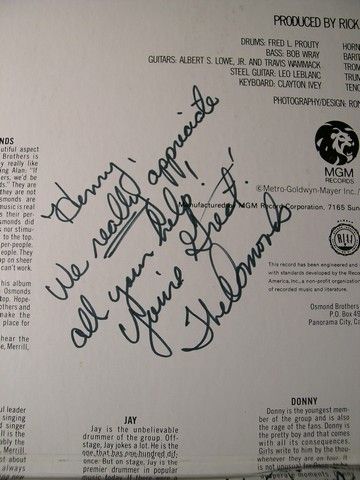 PRODUCED BY RICK
DRUMS: FRED L. PROUTY
BASS: BOB WRAY
GUITARS: ALBERT S. LOWE, JR. AND TRAVIS WAMMACK
STEEL GUITAR: LEO LEBLANC
KEYBOARD: CLAYTON IVEY
HORN
BARIT
TROM
TRUM
TENO
PHOTOGRAPHY/DESIGN: RON
MGM
RECORDS
©Metro-Goldwyn-Mayer Inc./
Manufactured by MGM Record Corporation, 7165 Sun
This record has been engineered and
with standards developed by the Reco
America, Inc., a non-profit organization
of recorded music and literature.
Osmond Brothers
P.O. Box 49
Panorama City, Ca
Henny,
We really appriciate
all your help!
You're Great!
The Osmonds
NDS
autiful aspect
Brothers is
ey really like
ing Alan: "If
ers, we'd be
ds." They are
they are not
smonds are
music is real
s their per-
smonds did
nor stimu-
to the top.
per-people.
people. They
up on sheer
can't work.
his album
Osmonds
top. Hope-
others and
make the
place for
hear the
, Merrill,
ful leader
singing
d singer
ll is the
ably the
Merrill.
cept at
always
ng next
JAY
Jay is the unbelievable
drummer of the group. Off-
stage, Jay jokes a lot. He is the
one that has one hundred dir-
But on stage, Jay is the
premier drummer in popular
DONNY
Donny is the youngest mem-
ber of the group and is also
the rage of the fans. Donny is
the pretty boy and that comes
with all its consequences.
Girls write to him by the thou-
whenever they are on four. It
is not unusual